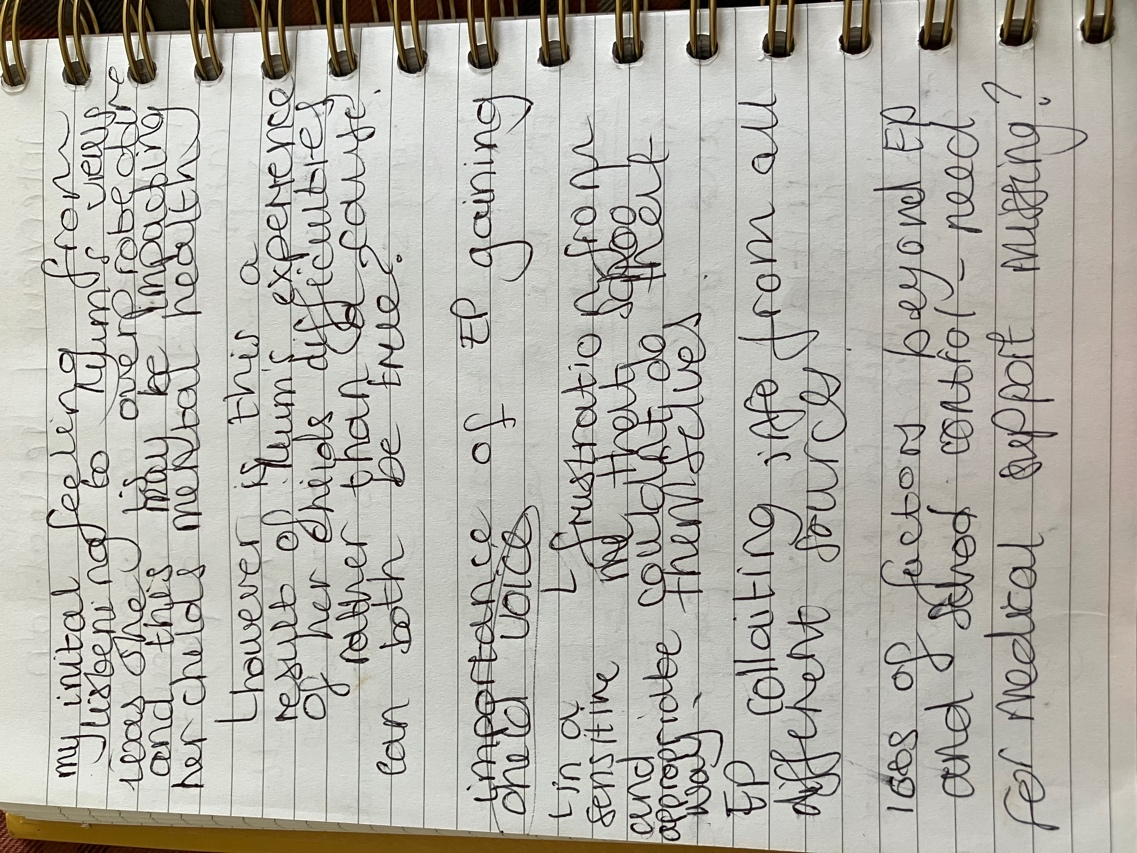 my inital feeling from
listening to Mum's views
was she is over protective
and this may be impacting
her childs mental health
L however is this a
result of Mum's experience
of her childs difficulties
rather than a cause.
can both be true?
importance of EP gaining
child voice
L in a
sensitive
and
appropriate
way.
L frustration from
me that school
couldn't do that
themselves
EP collaiting info from all
different sources
ises of factors beyond EP
and school control - need
for medical support missing?